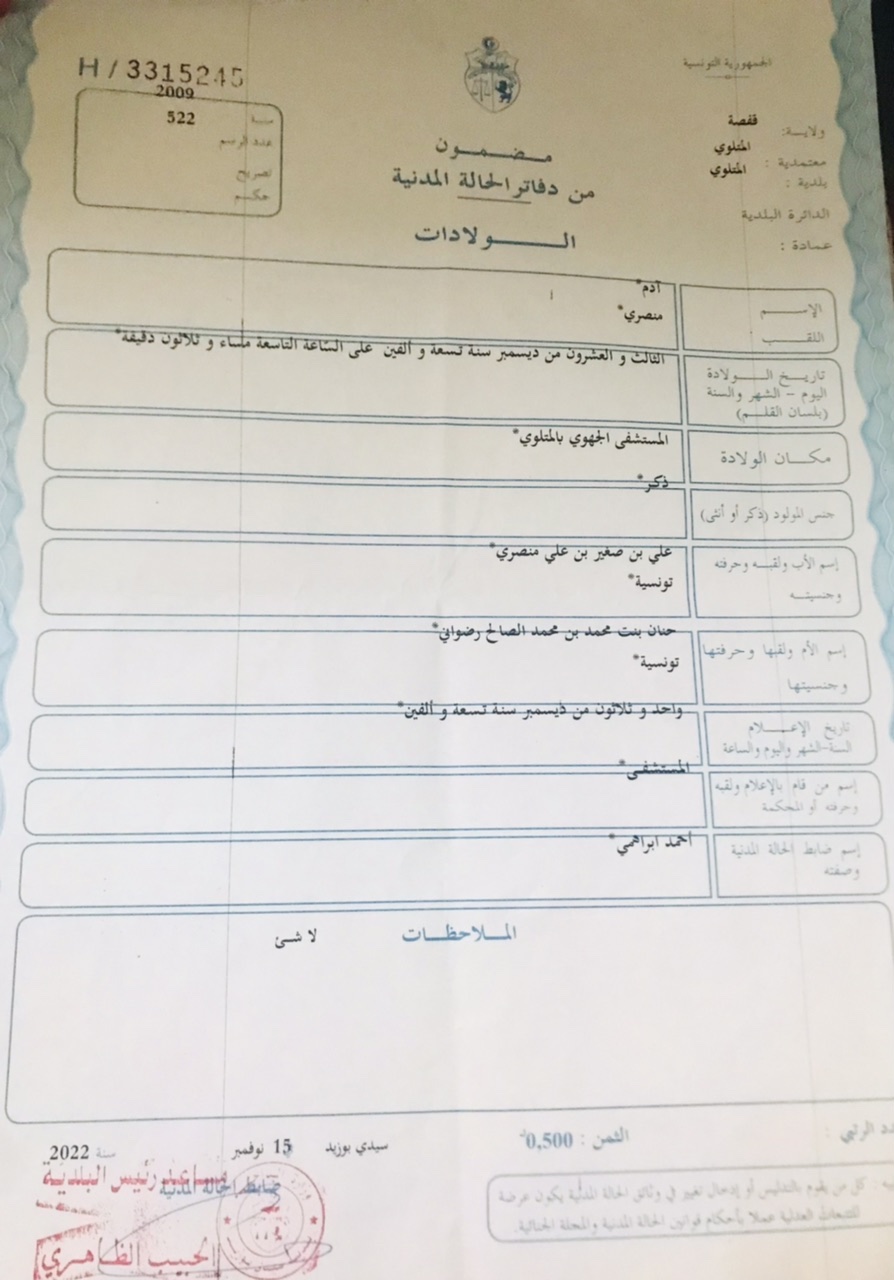 الجمهورية التونسية
H / 3315245
ولاية: قفصة
معتمدية : المتلوي
بلدية : المتلوي
الدائرة البلدية
عمادة :
سنة 2009
عدد الرسم 522
تصريح
حكم
مضمون
من دفاتر الحالة المدنية
الولادات
الإسم آدم*
اللقب منصري*
تاريخ الولادة
اليوم - الشهر والسنة
(بلسان القلم)
الثالث و العشرون من ديسمبر سنة تسعة و ألفين على الساعة التاسعة مساء و ثلاثون دقيقة*
مكان الولادة المستشفى الجهوي بالمتلوي*
جنس المولود (ذكر أو أنثى) ذكر*
إسم الأب ولقبه وحرفته علي بن صغير بن علي منصري*
وجنسيته تونسية*
إسم الأم ولقبها وحرفتها حنان بنت محمد بن محمد الصالح رضواني*
وجنسيتها تونسية*
تاريخ الإعلام واحد و ثلاثون من ديسمبر سنة تسعة و ألفين*
السنة-الشهر واليوم والساعة
إسم من قام بالإعلام ولقبه المستشفى*
وحرفته أو المحكمة
إسم ضابط الحالة المدنية أحمد ابراهمي*
وصفته
الملاحظات
لا شئ
الثمن : 0,500
سيدي بوزيد 15 نوفمبر سنة 2022
ضابط الحالة المدنية
مساعد رئيس البلدية
الحبيب الظاهري
كل من يقوم بالتدليس أو إدخال تغيير في وثائق الحالة المدنية يكون عرضة
للتتبعات العدلية عملا بأحكام قوانين الحالة المدنية والمجلة الجنائية.